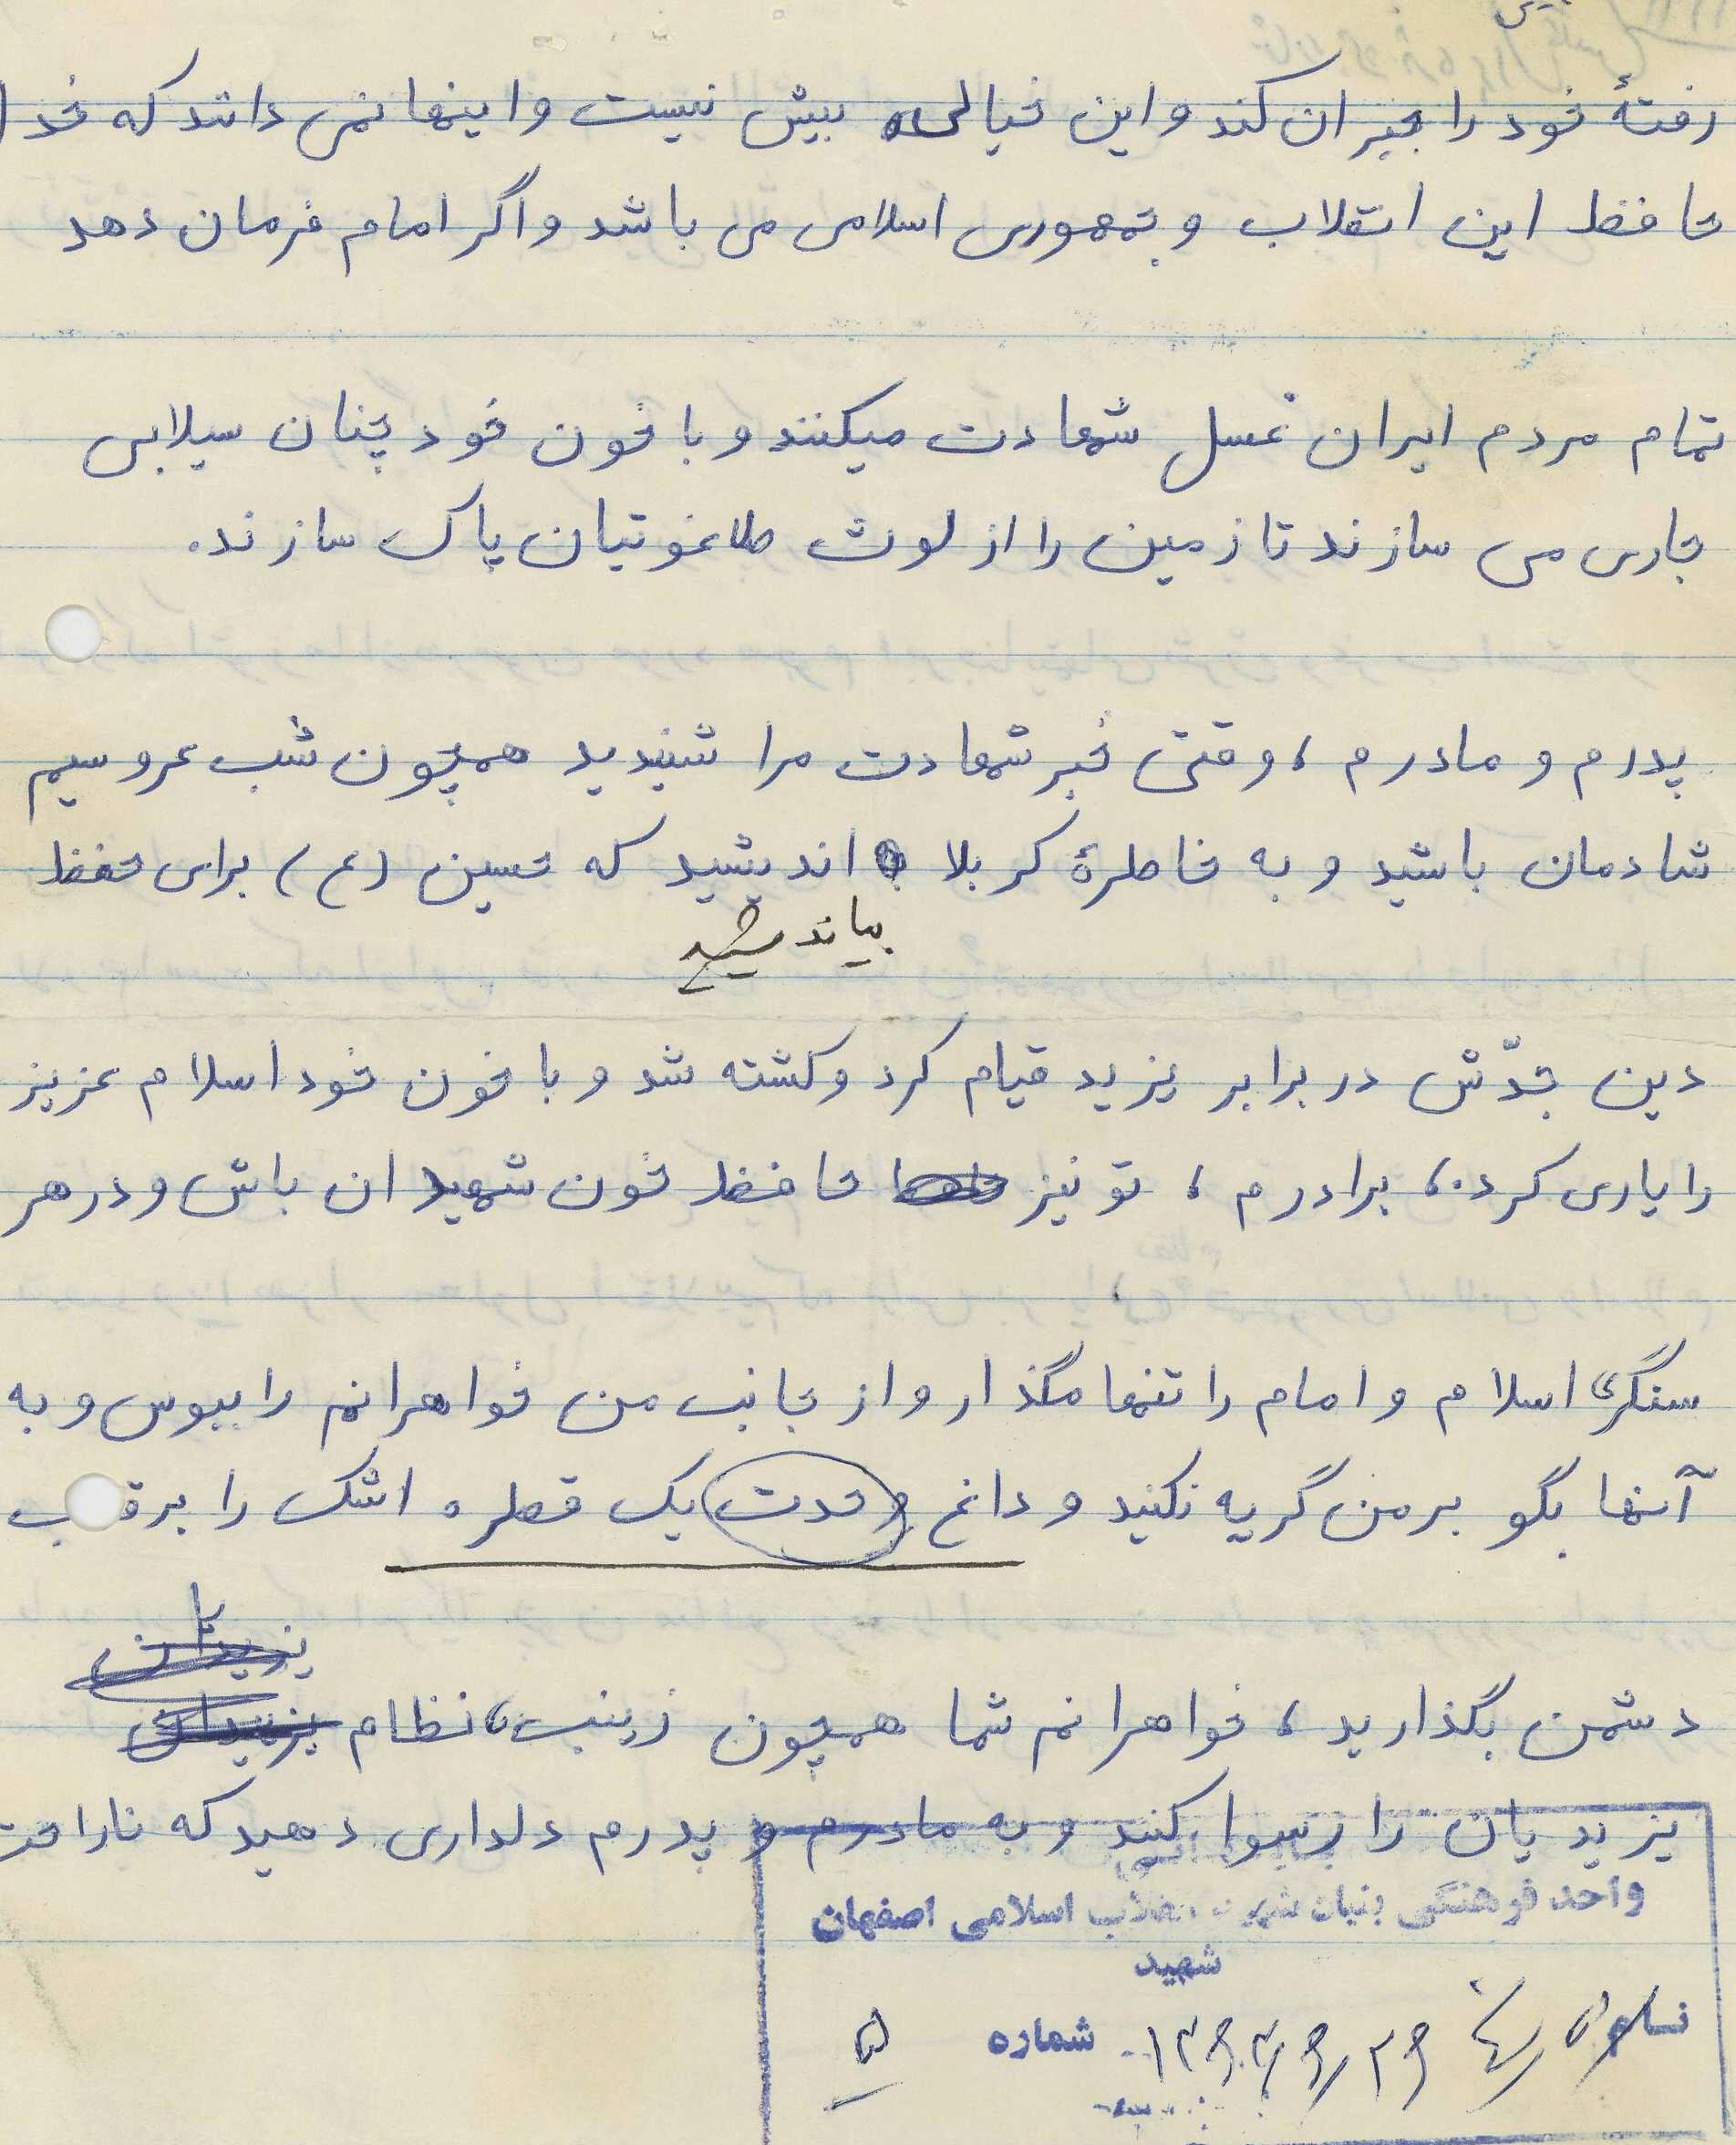 رفتهٔ خود را جبران کند و این خیالی بیش نیست و اینها نمی دانند که خدا
حافظ این انقلاب و جمهوری اسلامی می باشد و اگر امام فرمان دهد
تمام مردم ایران غسل شهادت میکنند و با خون خود چنان سیلابی
جاری می سازند تا زمین را از لوث طاغوتیان پاک سازند.
پدرم و مادرم، وقتی خبر شهادت مرا شنیدید همچون شب عروسیم
شادمان باشید و به خاطرهٔ کربلا اندیشید که حسین (ع) برای حفظ
بیاندیشید
دین جدّش در برابر یزید قیام کرد و کشته شد و با خون خود اسلام عزیز
را یاری کرد، برادرم، تو نیز حافظ خون شهیدان باش و در هر
سنگری اسلام و امام را تنها مگذار و از جانب من خواهرانم را ببوس و به
آنها بگو بر من گریه نکنید و داغ وحدت یک قطره اشک را بر قلب
دشمن بگذارید، خواهرانم شما همچون زینب، نظام
یزیدیان را رسوا کنید و به مادرم و پدرم دلداری دهید که ناراحت
واحد فرهنگی بنیاد شهید انقلاب اسلامی اصفهان
شهید
شماره ۵